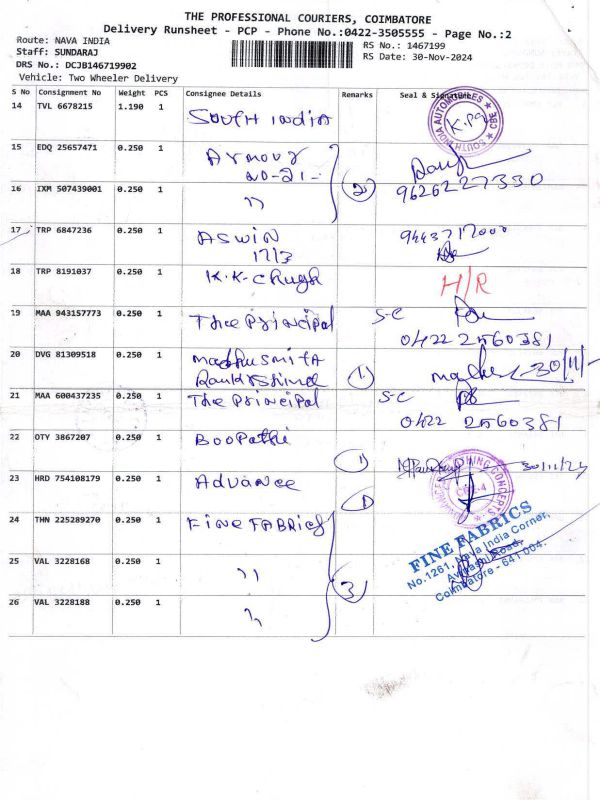 THE PROFESSIONAL COURIERS, COIMBATORE
Delivery Runsheet - PCP - Phone No.:0422-3505555 - Page No.:2
Route: NAVA INDIA
RS No.: 1467199
Staff: SUNDARAJ
RS Date: 30-Nov-2024
DRS No.: DCJB146719902
Vehicle: Two Wheeler Delivery
S No Consignment No Weight PCS Consignee Details Remarks Seal & Signature
14 TVL 6678215 1.190 1 South India
SOUTH INDIA AUTOMOBILES ★ CBE ★
15 EDQ 25657471 0.250 1 Armour
NO-21-
2
9626227330
16 IXM 507439001 0.250 1 ,,
17 TRP 6847236 0.250 1 ASWIN
1713
18 TRP 8191037 0.250 1 K.K-Chugh H/R
19 MAA 943157773 0.250 1 The Principal S-C
0422 2560381
20 DVG 81309518 0.250 1 Madhusmita
1 30/11/
21 MAA 600437235 0.250 1 The Principal S-C
0422 2560381
22 OTY 3867207 0.250 1 Boopathi
1 30/11/24
23 HRD 754108179 0.250 1 Advance
1
24 THN 225289270 0.250 1 Fine Fabrics
FINE FABRICS
No.1261, Nava India Corner,
Avinashi Road,
Coimbatore - 641 004.
25 VAL 3228168 0.250 1 ,,
3
26 VAL 3228188 0.250 1 ,,